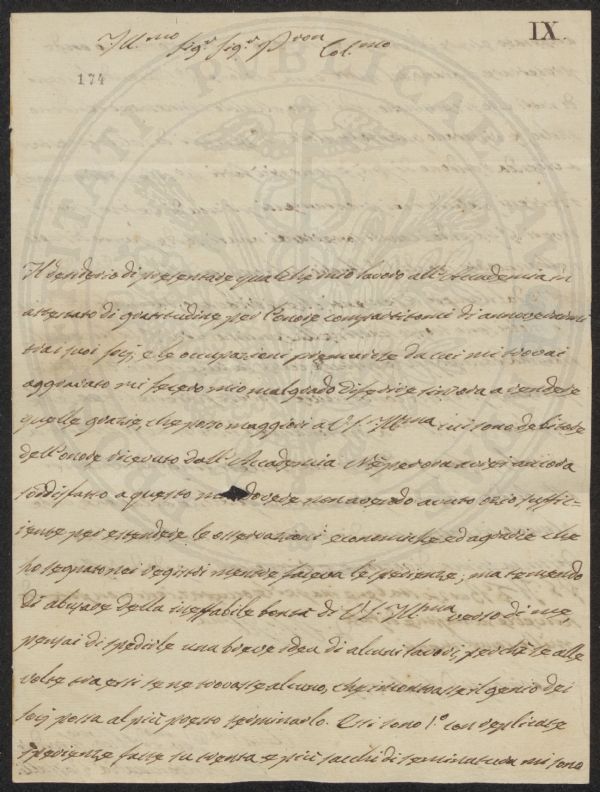 IX.
Ill.mo Sig.r Sig.r P.ron Col.mo
174
Il desiderio di presentare qualche mio lavoro all'Accademia in
attestato di gratitudine per l'onore compartitomi di annoverarmi
tra i suoi socj, e le occupazioni premurose da cui mi trovai
aggravato mi fecero mio malgrado differire sin'ora a rendere
quelle grazie, che posso maggiori a V.S. Ill.ma cui sono debitore
dell'onore ricevuto dall'Accademia. Nè per ora avrei ancora
soddisfatto a questo dovere non avendo avuto ozio suffic-
iente per estendere le osservazioni economiche ed agrarie che
ho segnato nei registri mentre faceva le sperienze; ma temendo
di abusare della ineffabile bontà di V.S. Ill.ma verso di me,
pensai di spedirle una breve idea di alcuni lavori, perchè se alle
volte tra essi se ne trovasse alcuno, che incontrasse il genio dei
socj possa al più presto terminarlo. Essi sono 1.o con replicate
sperienze fatte su trenta e più sacchi di seminatura mi sono